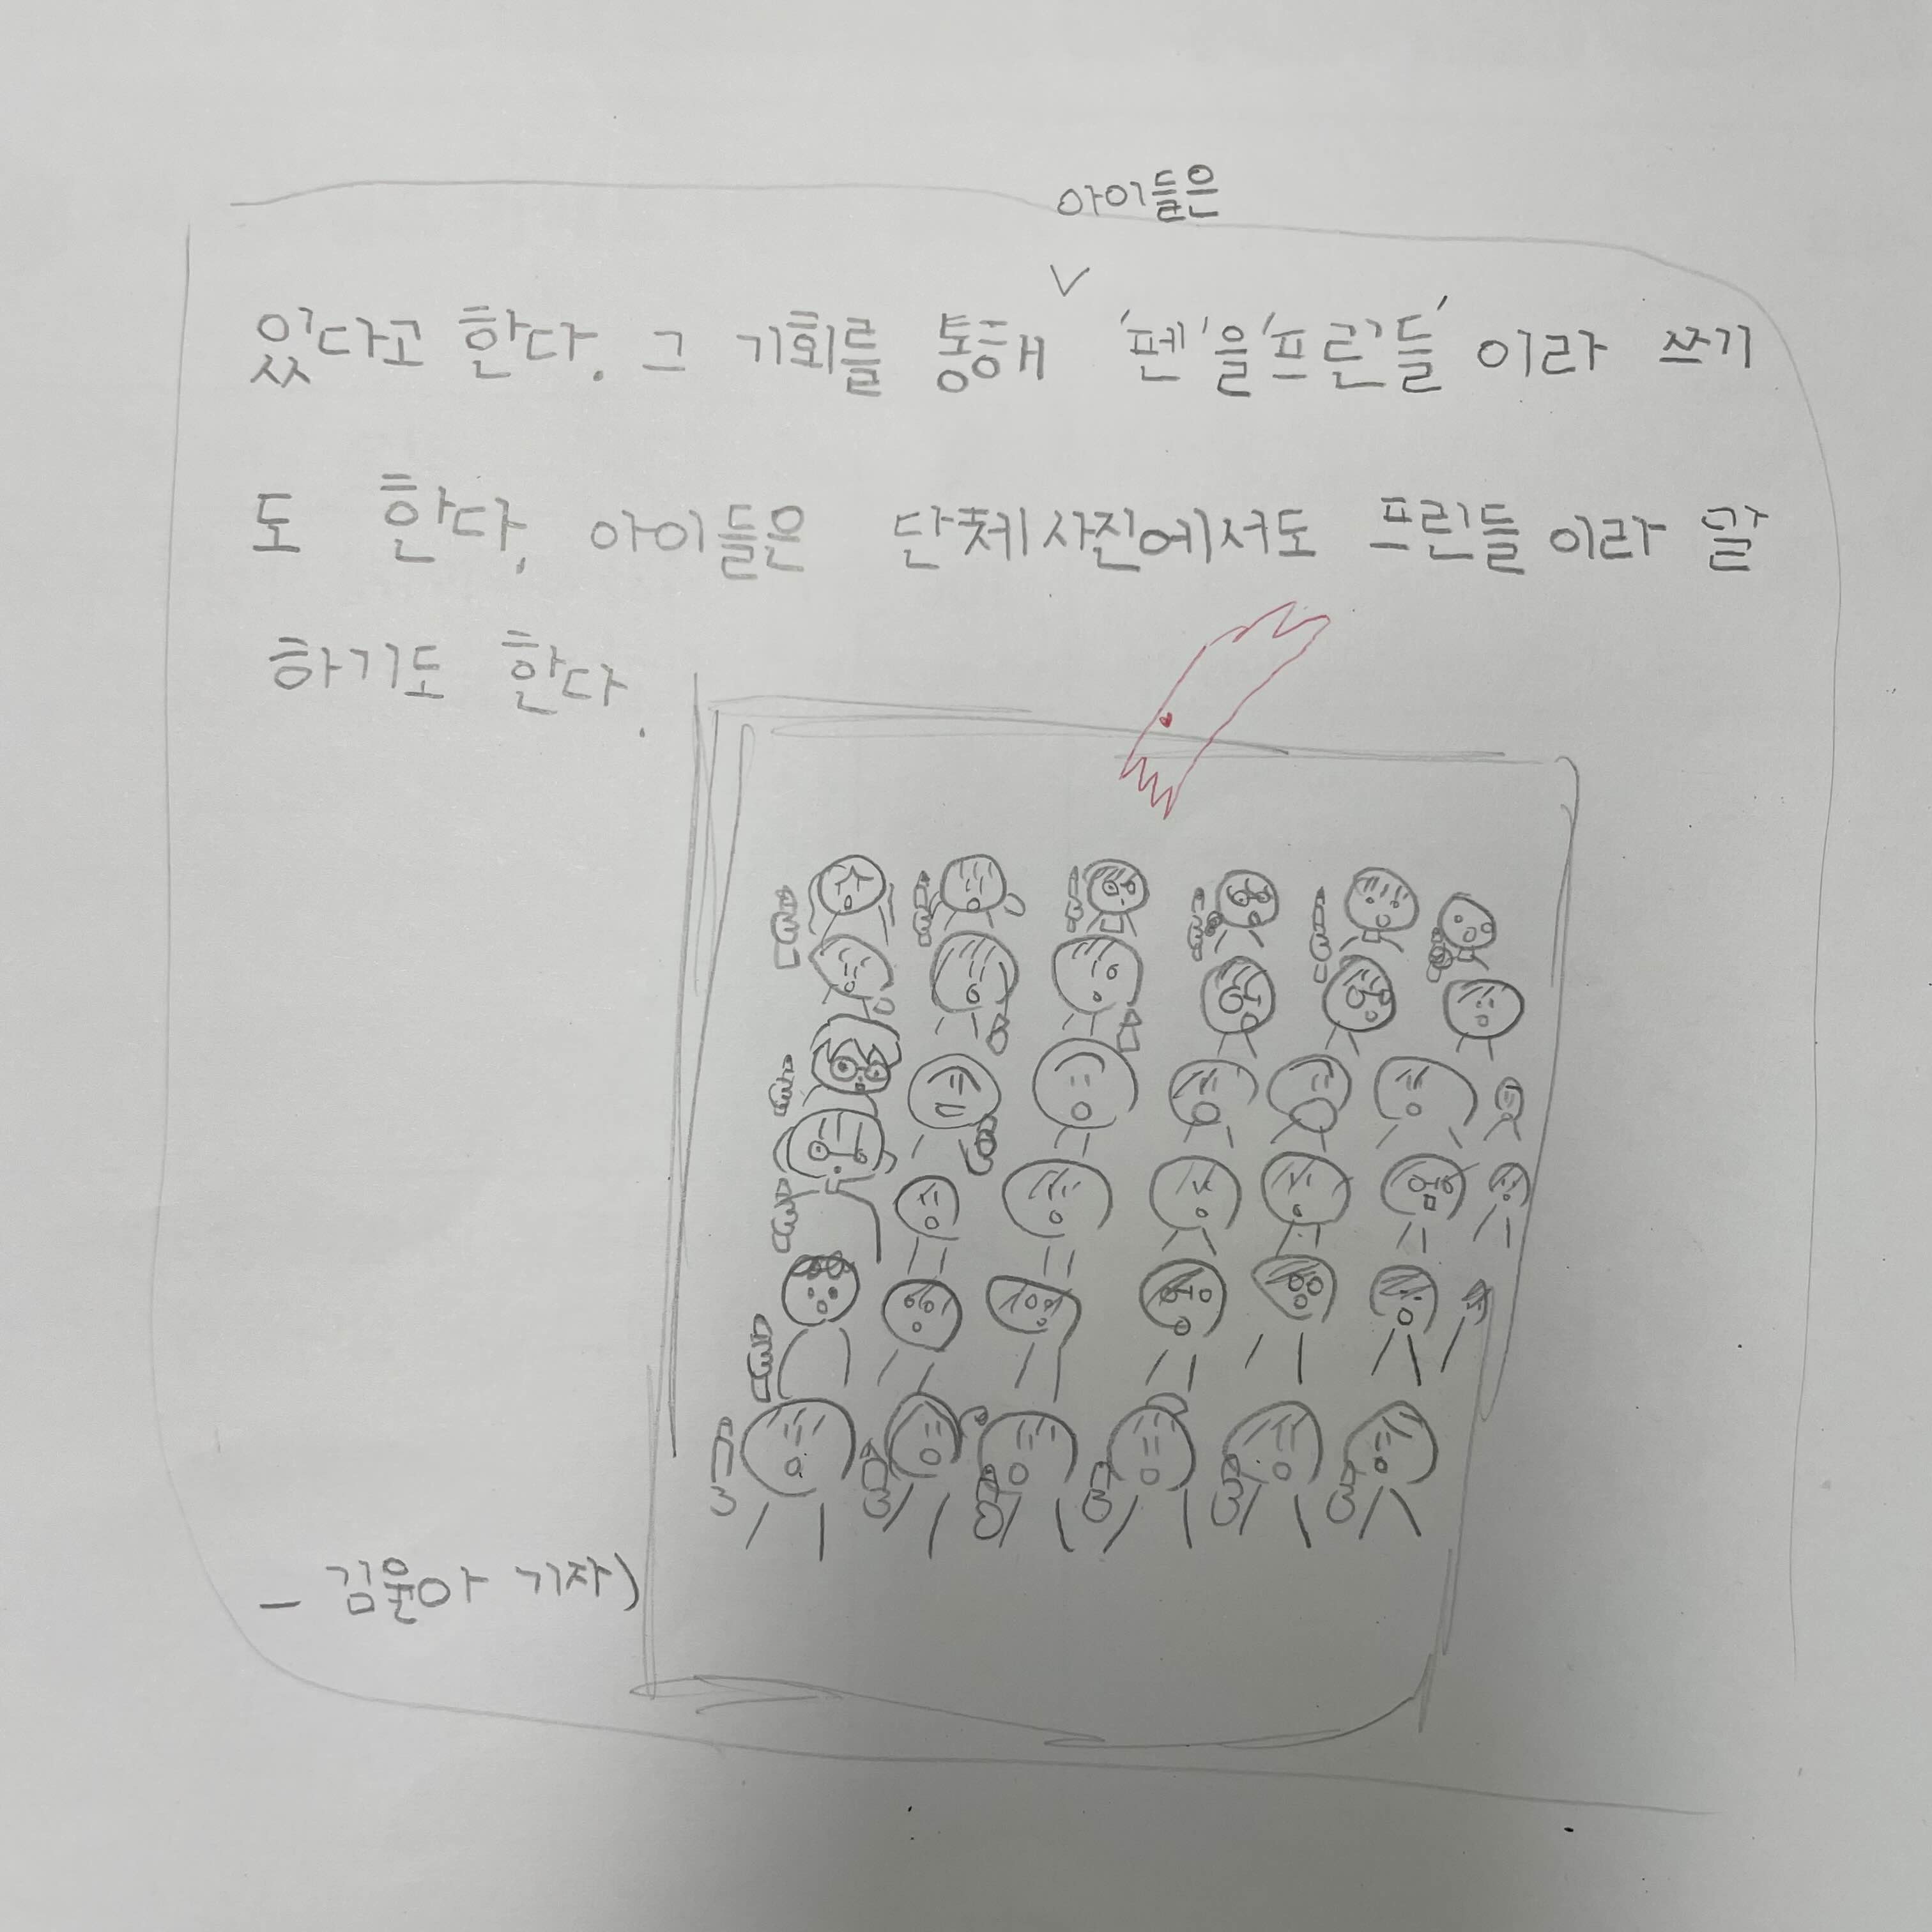 아이들은
∨
있다고 한다. 그 기회를 통해 '펜'을 '프린들' 이라 쓰기
도 한다. 아이들은 단체사진에서도 프린들 이라 말
하기도 한다.
- 김윤아 기자)